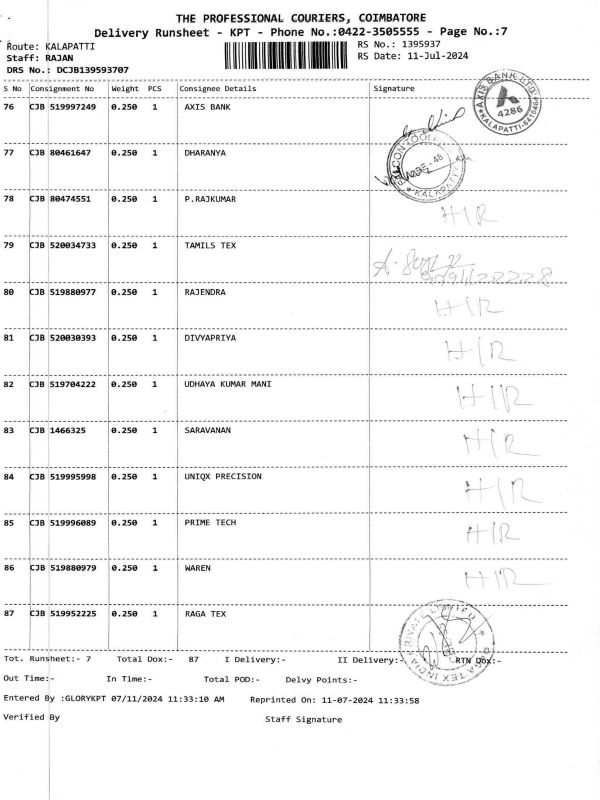 THE PROFESSIONAL COURIERS, COIMBATORE
Delivery Runsheet - KPT - Phone No.:0422-3505555 - Page No.:7
Route: KALAPATTI
RS No.: 1395937
Staff: RAJAN
RS Date: 11-Jul-2024
DRS No.: DCJB139593707
S No Consignment No Weight PCS Consignee Details Signature
76 CJB 519997249 0.250 1 AXIS BANK
AXIS BANK LTD.
4286
KALAPATTI-641048
77 CJB 80461647 0.250 1 DHARANYA
KALAPATTI
78 CJB 80474551 0.250 1 P.RAJKUMAR H/R
79 CJB 520034733 0.250 1 TAMILS TEX
80 CJB 519880977 0.250 1 RAJENDRA H/R
81 CJB 520030393 0.250 1 DIVYAPRIYA H/R
82 CJB 519704222 0.250 1 UDHAYA KUMAR MANI H/R
83 CJB 1466325 0.250 1 SARAVANAN H/R
84 CJB 519995998 0.250 1 UNIQX PRECISION H/R
85 CJB 519996089 0.250 1 PRIME TECH H/R
86 CJB 519880979 0.250 1 WAREN H/R
87 CJB 519952225 0.250 1 RAGA TEX
RAGA TEX INDIA PRIVATE LIMITED
Tot. Runsheet:- 7 Total Dox:- 87 I Delivery:- II Delivery:- RTN Dox:-
Out Time:- In Time:- Total POD:- Delvy Points:-
Entered By :GLORYKPT 07/11/2024 11:33:10 AM Reprinted On: 11-07-2024 11:33:58
Verified By Staff Signature